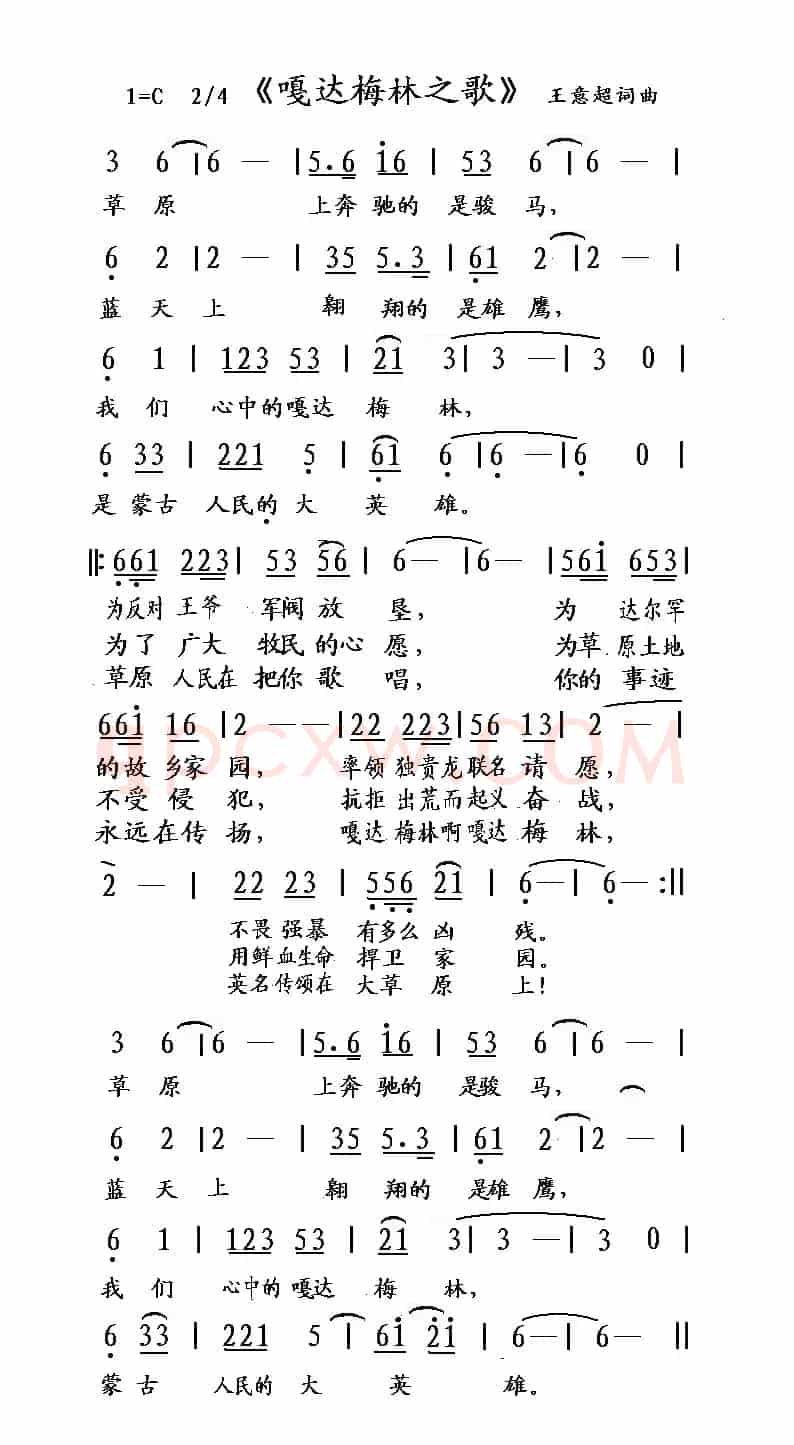 1=C 2/4 《嘎达梅林之歌》 王意超词曲
3 6 | 6 — | 5. 6 i 6 | 5 3 6 | 6 — |
草 原 上奔 驰的 是骏 马,
6 2 | 2 — | 35 5.3 | 61 2 | 2 — |
蓝 天 上 翱 翔的 是雄 鹰,
6 1 | 123 53 | 21 3 | 3 — | 3 0 |
我 们 心中的嘎达 梅 林,
6 33 | 221 5 | 61 6 | 6 — | 6 0 |
是 蒙古 人民的 大 英 雄。
‖: 661 223 | 53 56 | 6 — | 6 — | 56i 653 |
为反对 王爷 军阀 放 垦, 为 达尔罕
为了 广大 牧民 的心 愿, 为草原土地
草原 人民在 把你 歌 唱, 你的 事迹
66i 16 | 2 — — | 22 223 | 56 13 | 2 — |
的故 乡家 园, 率领 独贵龙 联名 请 愿,
不受 侵 犯, 抗拒 出荒而起义 奋 战,
永远在传 扬, 嘎达 梅林啊嘎达 梅 林,
2 — | 22 23 | 556 21 | 6 — | 6 — :‖
不畏 强暴 有多么 凶 残。
用鲜血生命 捍卫 家 园。
英名传颂在 大草 原 上!
3 6 | 6 — | 5. 6 i 6 | 5 3 6 | 6 — |
草 原 上奔 驰的 是骏 马,
6 2 | 2 — | 35 5.3 | 61 2 | 2 — |
蓝 天 上 翱 翔的 是雄 鹰,
6 1 | 123 53 | 21 3 | 3 — | 3 0 |
我 们 心中的 嘎达 梅 林,
6 33 | 221 5 | 6i 2i | 6 — | 6 — ‖
蒙 古 人民的 大 英 雄。